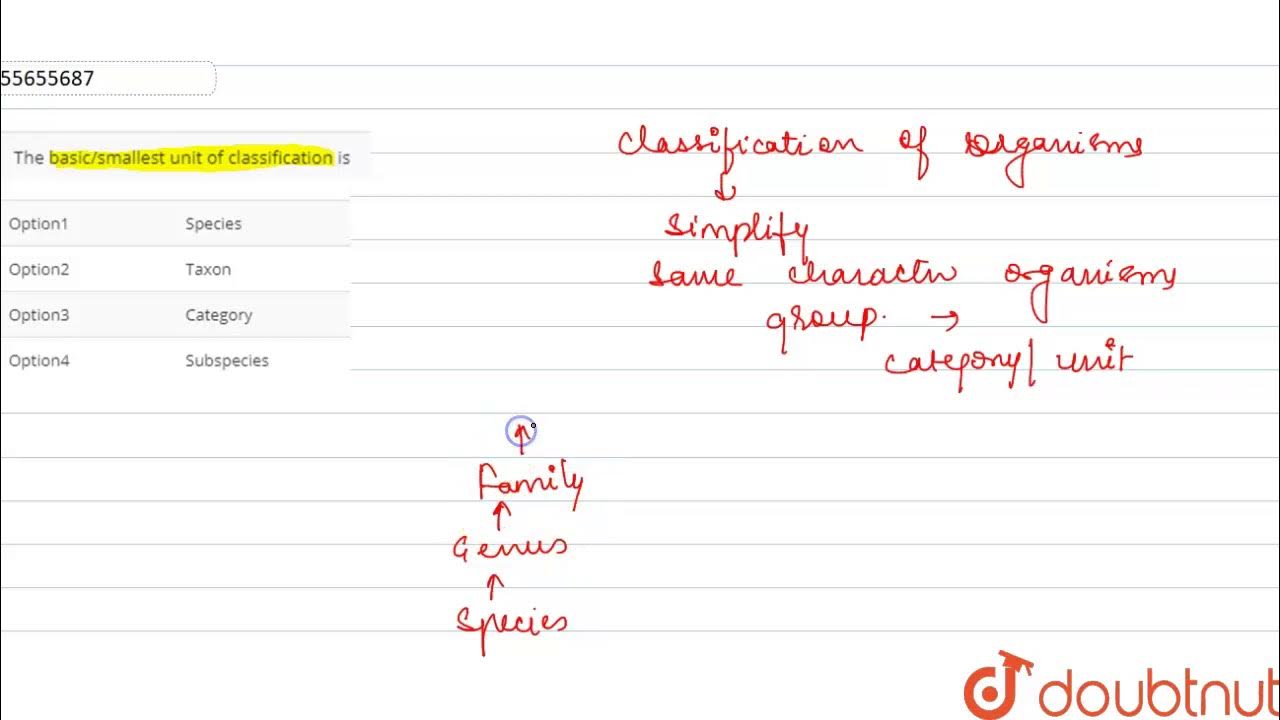 55655687
The basic/smallest unit of classification is
Option1 Species
Option2 Taxon
Option3 Category
Option4 Subspecies
Classification of organisms
↓
Simplify
Same charactr organisms
group. →
category/ unit
↑
Family
↑
Genus
↑
Species
doubtnut